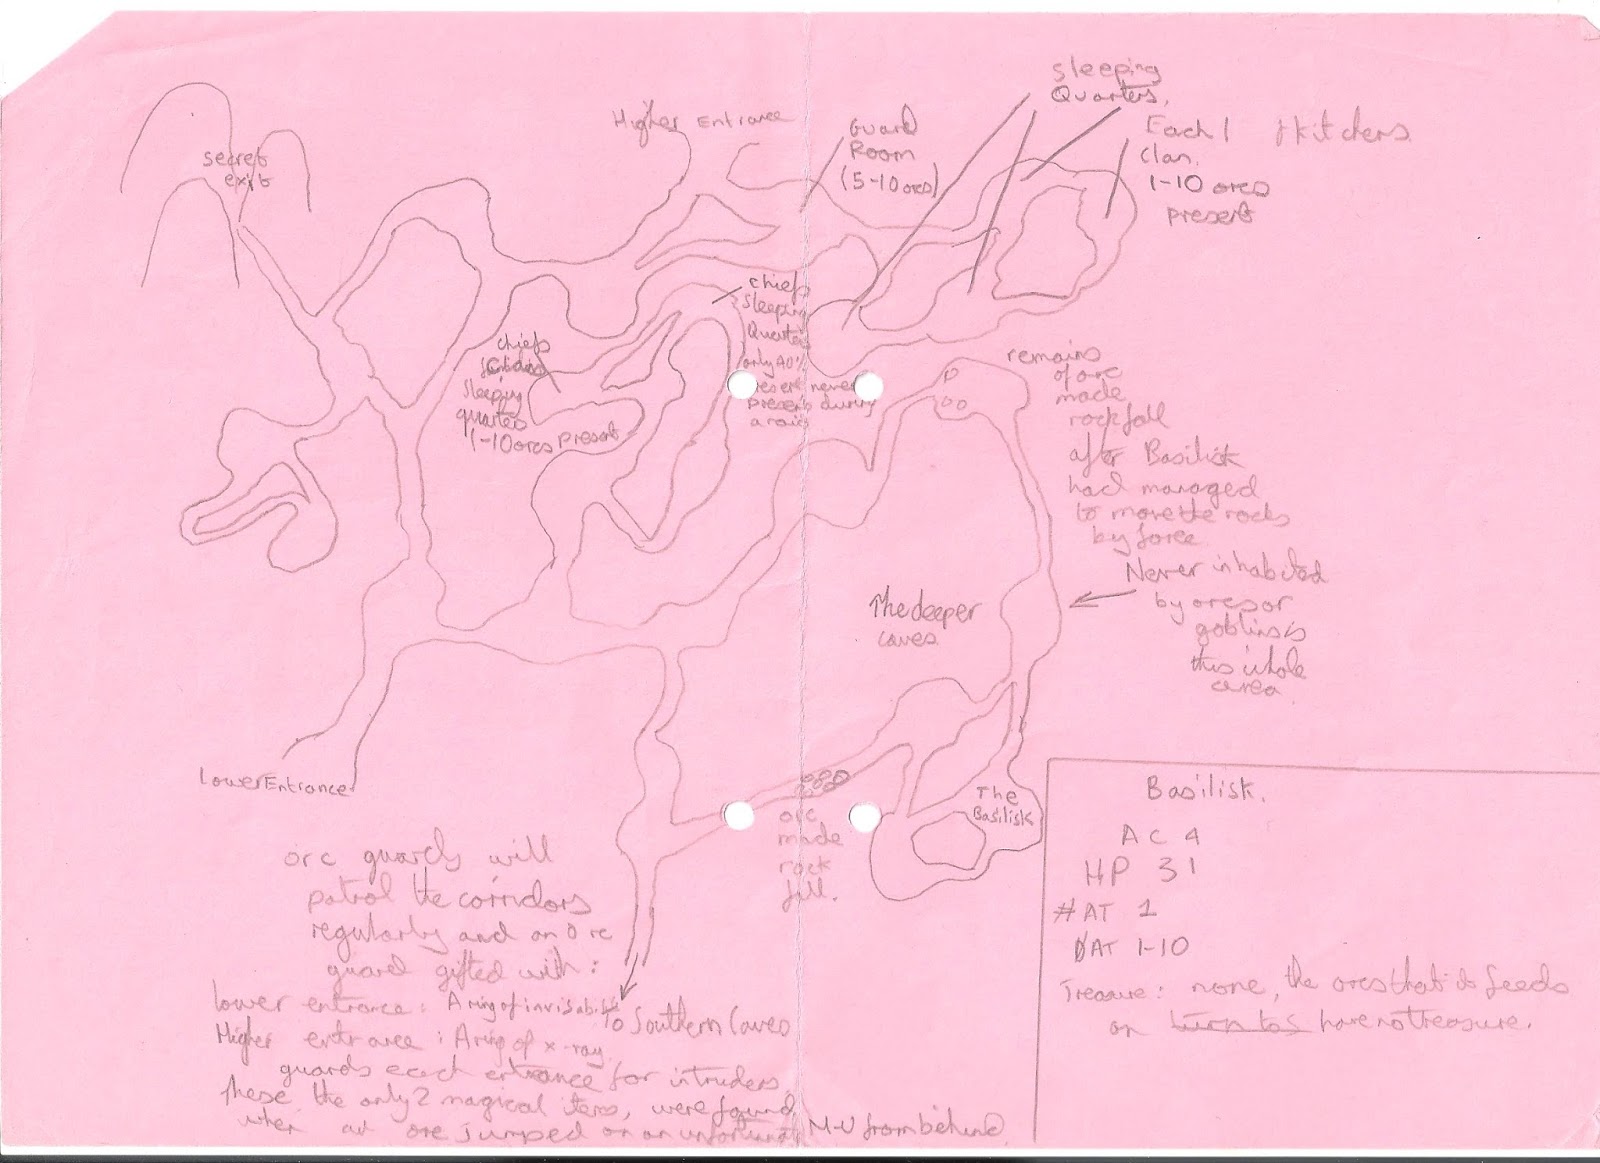 secret
exit
Higher Entrance
Guard
Room
(5-10 orcs)
sleeping
Quarters.
Each 1
clan.
1-10 orcs
present
Kitchens
chiefs
Sleeping
Quarters
only 40%
present never
present during
a raid
chiefs
sleeping
quarters
1-10 orcs present
remains
of orc
made
rockfall
after Basilisk
had managed
to move the rocks
by force
Never inhabited
by orcs or
goblins is
this whole
area
The deeper
caves
Lower Entrance
orc
made
rock
fall.
The
Basilisk
orc guards will
patrol the corridors
regularly and an orc
guard gifted with:
lower entrance: A ring of invisabil
Higher entrance: A ring of x-ray
guards each entrance for intruders
These the only 2 magical items, were found
when an orc jumped on an unfortunate M-U from behind
To Southern Caves
Basilisk.
AC 4
HP 31
#AT 1
DAT 1-10
Treasure: none, the orcs that it feeds
on have no treasure.